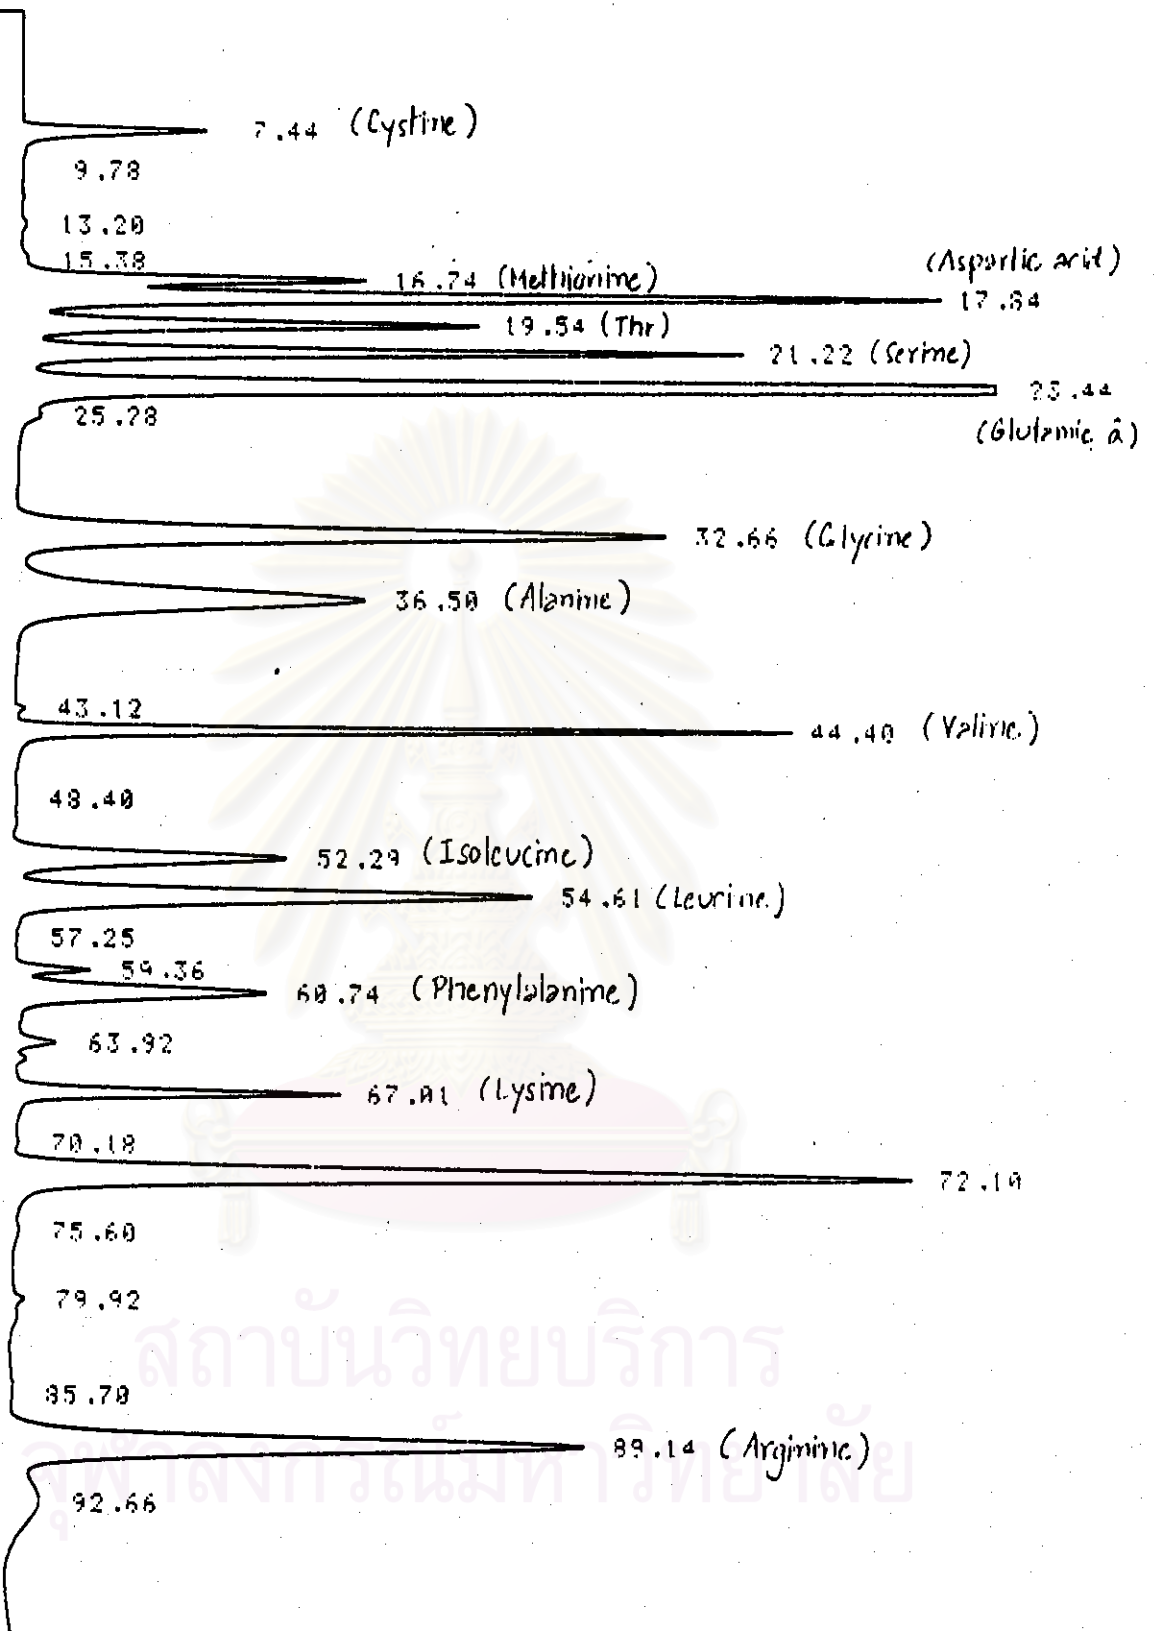 7.44 (Cystine)
9.78
13.20
15.38
16.74 (Methionine)
(Aspartic acid)
17.84
19.54 (Thr)
21.22 (Serine)
23.44
25.28
(Glutamic a)
32.66 (Glycine)
36.50 (Alanine)
43.12
44.40 (Valine)
48.40
52.29 (Isoleucine)
54.61 (Leucine)
57.25
59.36
60.74 (Phenylalanine)
63.92
67.01 (Lysine)
70.18
72.10
75.60
79.92
สถาบันวิทยบริการ
85.70
89.14 (Arginine)
จุฬาลงกรณ์มหาวิทยาลัย
92.66